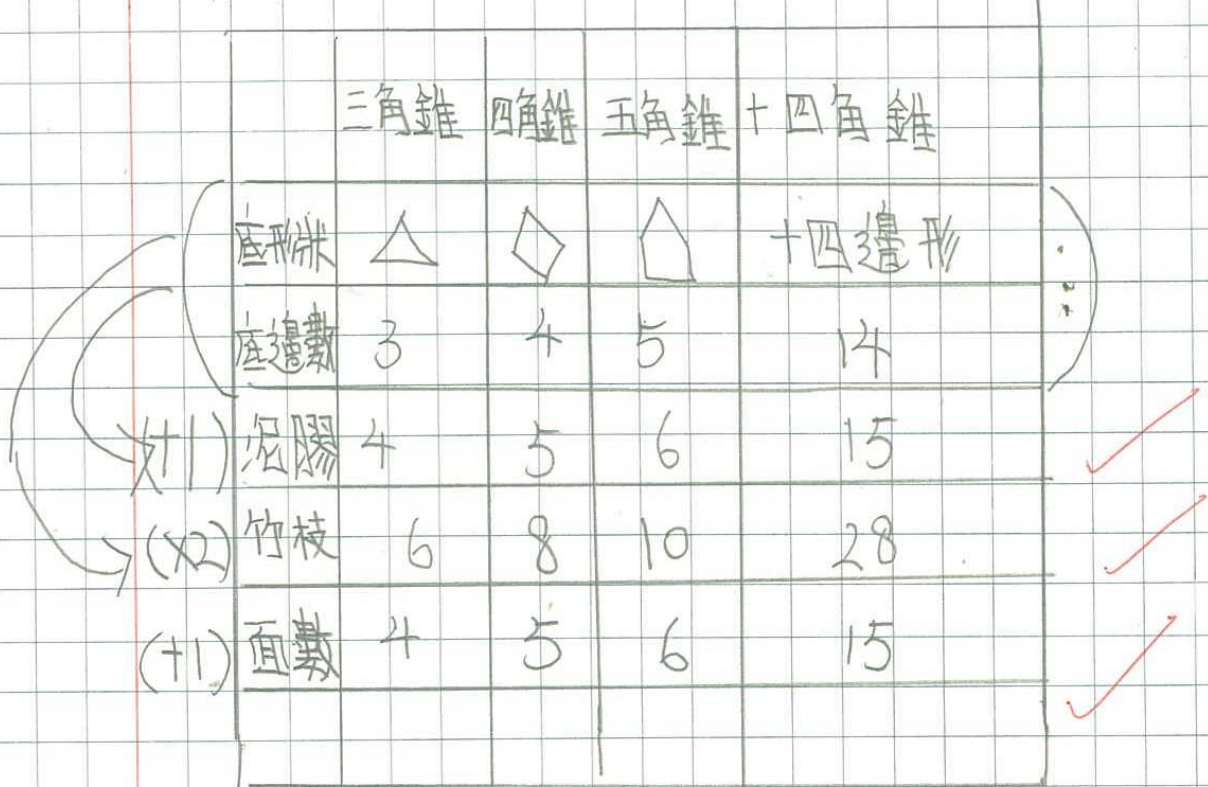 三角錐 四角錐 五角錐 十四角錐
底形狀 十四邊形
底邊數 3 4 5 14
(+1) 泥膠 4 5 6 15
(x2) 竹枝 6 8 10 28
(+1) 面數 4 5 6 15